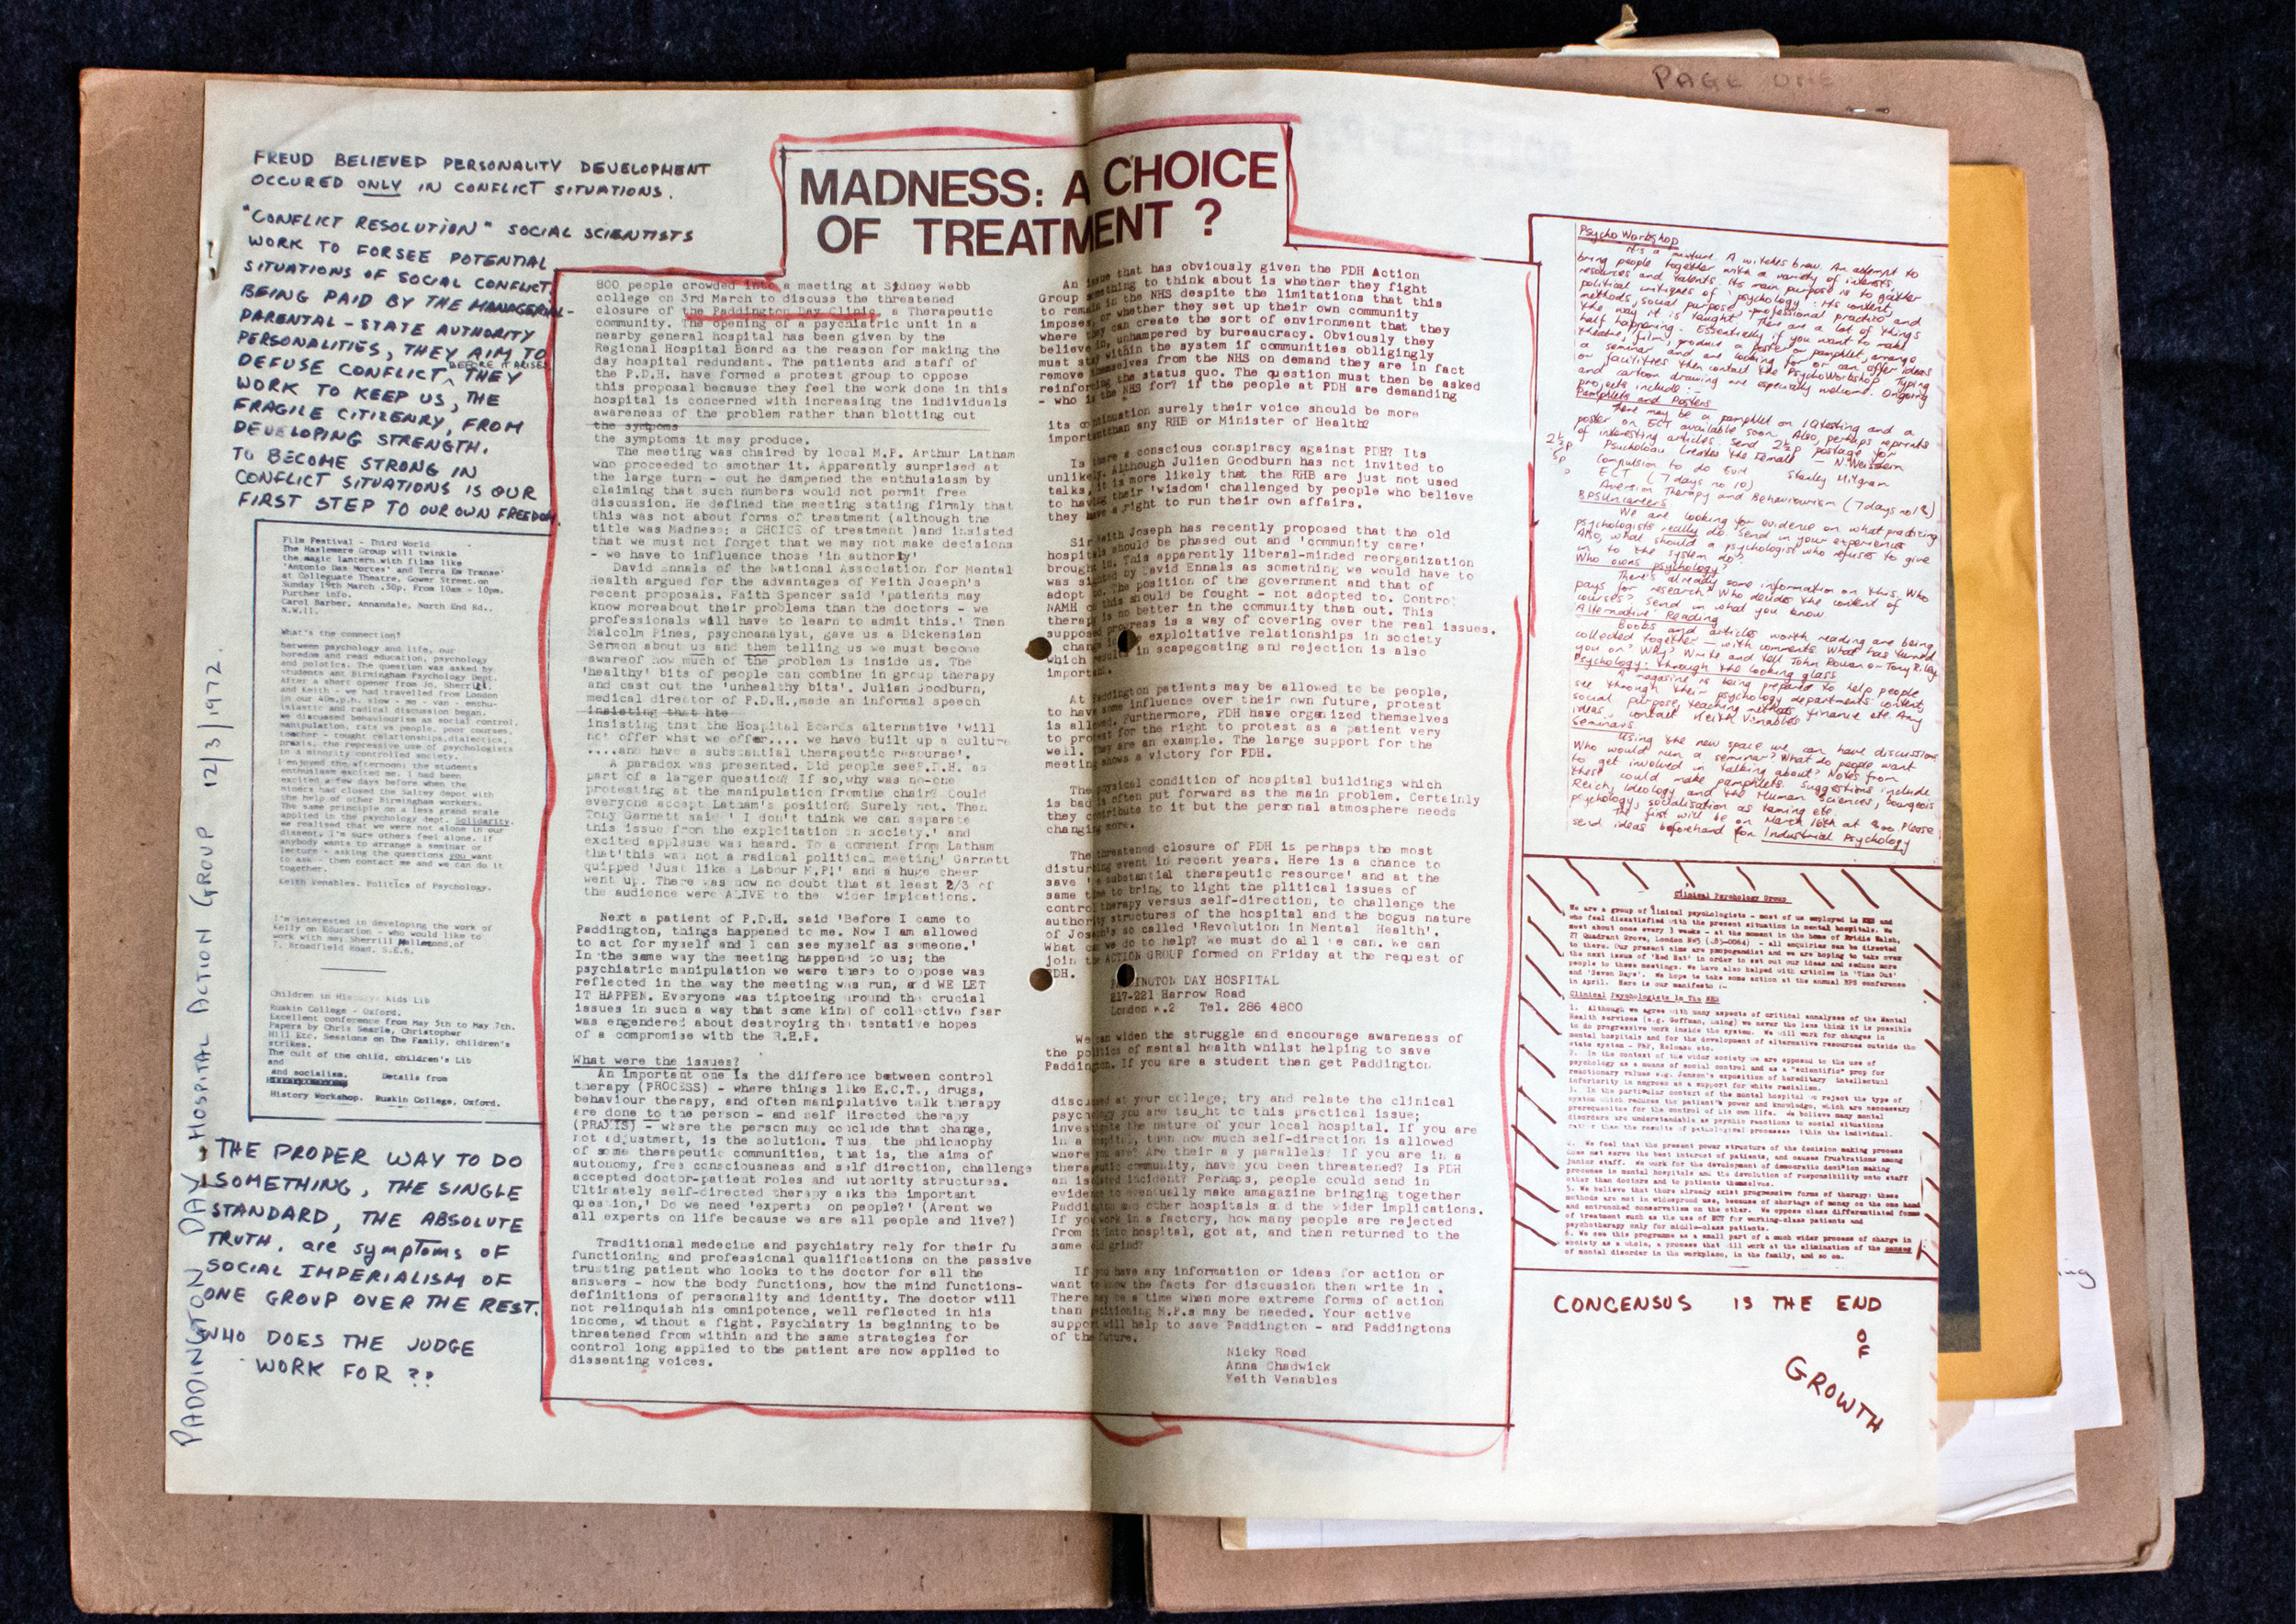 PAGE ONE
FREUD BELIEVED PERSONALITY DEVELOPMENT
OCCURED ONLY IN CONFLICT SITUATIONS.
"CONFLICT RESOLUTION" SOCIAL SCIENTISTS
WORK TO FORSEE POTENTIAL
SITUATIONS OF SOCIAL CONFLICT.
BEING PAID BY THE MANAGERIAL-
PARENTAL-STATE AUTHORITY
PERSONALITIES, THEY AIM TO
DEFUSE CONFLICT BEFORE IT ARISES, THEY
WORK TO KEEP US, THE
FRAGILE CITIZENRY, FROM
DEVELOPING STRENGTH.
TO BECOME STRONG IN
CONFLICT SITUATIONS IS OUR
FIRST STEP TO OUR OWN FREEDOM.
Film Festival - Third World
The Haslemere Group will twinkle
the magic lantern with films like
'Antonio Das Mortes' and Terra Em Transe'
at Collegiate Theatre, Gower Street.on
Sunday 19th March .50p. From 10am - 10pm.
Further info.
Carol Barber, Annandale, North End Rd.,
N.W.11.
What's the connection?
between psychology and life, our
boredom and read education, psychology
and politics. The question was asked by
students ant Birmingham Psychology Dept.
After a short opener from Jo, Sherrill,
and Keith - we had travelled from London
in our 40m.p.h. slow - mo - van - enthu-
isiastic and radical discussion began.
We discussed behaviourism as social control,
manipulation, rats vs people, poor courses,
teacher - tought relationships,dialectics,
praxis, the repressive use of psychologists
in a minority controlled society.
I enjoyed the afternoon; the students
enthusiasm excited me. I had been
excited a few days before when the
miners had closed the Saltey depot with
the help of other Birmingham workers.
The same principle on a less grand scale
applied in the psychology dept. Solidarity.
We realised that we were not alone in our
dissent. I'm sure others feel alone. if
anybody wants to arrange a seminar or
lecture - asking the questions you want
to ask - then contact me and we can do it
together.
Keith Venables. Politics of Psychology.
I'm interested in developing the work of
Kelly on Education - who would like to
work with me; Sherrill
7, Broadfield Road, S.E.6.
Children in History: Kids Lib
Ruskin College - Oxford.
Excellent conference from May 5th to May 7th.
Papers by Chris Searle, Christopher
Hill Etc. Sessions on The Family, children's
strikes.
The cult of the child, children's Lib
and
and socialism. Details from
History Workshop. Ruskin College, Oxford.
THE PROPER WAY TO DO
SOMETHING, THE SINGLE
STANDARD, THE ABSOLUTE
TRUTH, are symptoms OF
SOCIAL IMPERIALISM OF
ONE GROUP OVER THE REST.
WHO DOES THE JUDGE
WORK FOR ??
PADDINGTON DAY HOSPITAL ACTION GROUP 12/3/1972.
MADNESS: A CHOICE
OF TREATMENT ?
800 people crowded into a meeting at Sidney Webb
college on 3rd March to discuss the threatened
closure of the Paddington Day Clinic, a Therapeutic
community. The opening of a psychiatric unit in a
nearby general hospital has been given by the
Regional Hospital Board as the reason for making the
day hospital redundant. The patients and staff of
the P.D.H. have formed a protest group to oppose
this proposal because they feel the work done in this
hospital is concerned with increasing the individuals
awareness of the problem rather than blotting out
the sympoms
the symptoms it may produce.
The meeting was chaired by local M.P. Arthur Latham
who proceeded to smother it. Apparently surprised at
the large turn - out he dampened the enthuisiasm by
claiming that such numbers would not permit free
discussion. He defined the meeting stating firmly that
this was not about forms of treatment (although the
title was Madness: a CHOICE of treatment )and insisted
that we must not forget that we may not make decisions
- we have to influence those 'in authority'
David Ennals of the National Association for Mental
Health argued for the advantages of Keith Joseph's
recent proposals. Faith Spencer said 'patients may
know moreabout their problems than the doctors - we
professionals will have to learn to admit this.' Then
Malcolm Pines, psychoanalyst, gave us a Dickensian
Sermon about us and them telling us we must become
awareof how much of the problem is inside us. The
'healthy' bits of people can combine in group therapy
and cast out the 'unhealthy bits'. Julian Goodburn,
medical director of P.D.H.,made an informal speech
insisting that hte
insisting that the Hospital Boards alternative 'will
not offer what we offer.... we have built up a culture
....and have a substantial therapeutic resourse'.
A paradox was presented. Did people seeP.D.H. as
part of a larger question? If so,why was no-one
protesting at the manipulation fromthe chair? Could
everyone accept Latham's position? Surely not. Then
Tony Garnett said ' I don't think we can separate
this issue from the exploitation in society.' and
excited applause was heard. To a comment from Latham
that'this was not a radical political meeting' Garnett
quipped 'Just like a Labour M.P!' and a huge cheer
went up. There was now no doubt that at least 2/3 of
the audience were ALIVE to the wider impications.
Next a patient of P.D.H. said 'Before I came to
Paddington, things happened to me. Now I am allowed
to act for myself and I can see myself as someone.'
In the same way the meeting happened to us; the
psychiatric manipulation we were there to oppose was
reflected in the way the meeting was run, and WE LET
IT HAPPEN. Everyone was tiptoeing around the crucial
issues in such a way that some kind of collective fear
was engendered about destroying the tentative hopes
of a compromise with the R.H.B.
What were the issues?
An important one is the difference between control
therapy (PROCESS) - where things like E.C.T., drugs,
behaviour therapy, and often manipulative talk therapy
are done to the person - and self directed therapy
(PRAXIS) - where the person may conclude that change,
not adjustment, is the solution. Thus, the philosophy
of some therapeutic communities, that is, the aims of
autonomy, free consciousness and self direction, challenge
accepted doctor-patient roles and authority structures.
Ultimately self-directed therapy asks the important
question,' Do we need 'experts' on people?' (Arent we
all experts on life because we are all people and live?)
Traditional medecine and psychiatry rely for their fu
functioning and professional qualifications on the passive
trusting patient who looks to the doctor for all the
answers - how the body functions, how the mind functions-
definitions of personality and identity. The doctor will
not relinquish his omnipotence, well reflected in his
income, without a fight. Psychiatry is beginning to be
threatened from within and the same strategies for
control long applied to the patient are now applied to
dissenting voices.
An issue that has obviously given the PDH Action
Group something to think about is whether they fight
to remain in the NHS despite the limitations that this
imposes, or whether they set up their own community
where they can create the sort of environment that they
believe in, unhampered by bureaucracy. Obviously they
must stay within the system if communities obligingly
remove themselves from the NHS on demand they are in fact
reinforcing the status quo. The question must then be asked
- who is the NHS for? if the people at PDH are demanding
its continuation surely their voice should be more
important than any RHB or Minister of Health?
Is there a conscious conspiracy against PDH? Its
unlikely. Although Julien Goodburn has not invited to
talks, it is more likely that the RHB are just not used
to having their 'wisdom' challenged by people who believe
they have a right to run their own affairs.
Sir Keith Joseph has recently proposed that the old
hospitals should be phased out and 'community care'
brought in. This apparently liberal-minded reorganization
was sighted by David Ennals as something we would have to
adopt to. The position of the government and that of
NAMH on this should be fought - not adopted to. Control
therapy is no better in the community than out. This
supposed progress is a way of covering over the real issues.
change in the exploitative relationships in society
which results in scapegoating and rejection is also
important.
At Paddington patients may be allowed to be people,
to have some influence over their own future, protest
is allowed. Furthermore, PDH have organized themselves
to protest for the right to protest as a patient very
well. They are an example. The large support for the
meeting shows a victory for PDH.
The physical condition of hospital buildings which
is bad is often put forward as the main problem. Certainly
they contribute to it but the personal atmosphere needs
changing more.
The threatened closure of PDH is perhaps the most
disturbing event in recent years. Here is a chance to
save 'a substantial therapeutic resource' and at the
same time to bring to light the plitical issues of
control therapy versus self-direction, to challenge the
authority structures of the hospital and the bogus nature
of Joseph's so called 'Revolution in Mental Health'.
What can we do to help? We must do all we can. We can
join the ACTION GROUP formed on Friday at the request of
PDH.
PADDINGTON DAY HOSPITAL
217-221 Harrow Road
London w.2 Tel. 286 4800
We can widen the struggle and encourage awareness of
the politics of mental health whilst helping to save
Paddington. If you are a student then get Paddington
discussed at your college; try and relate the clinical
psychology you are taught to this practical issue;
investigate the nature of your local hospital. If you are
in a hospital, then how much self-direction is allowed
where you are? Are their any parallels? If you are in a
therapeutic community, have you been threatened? Is PDH
an isolated incident? Perhaps, people could send in
evidence to eventually make amagazine bringing together
Paddington and other hospitals and the wider implications.
If you work in a factory, how many people are rejected
from it into hospital, got at, and then returned to the
same old grind?
If you have any information or ideas for action or
want to know the facts for discussion then write in .
There may be a time when more extreme forms of action
than petitioning M.P.s may be needed. Your active
support will help to save Paddington - and Paddingtons
of the future.
Nicky Road
Anna Chadwick
Keith Venables
Psycho Workshop
It's a mixture. A witches brew. An attempt to
bring people together with a variety of interests,
resources and talents. Its main purpose is to gather
political critiques of 'psychology': its content,
methods, social purpose, professional practice and
the way it is taught. There are a lot of things
half happening. Essentially if you want to make
theatre, film, produce a poster or pamphlet, arrange
a seminar and are looking for or can offer ideas
or facilities then contact the PsychoWorkshop. Typing
and cartoon drawing are especially welcome. Ongoing
projects include:
Pamphlets and Posters
There may be a pamphlet on IQtesting and a
poster on ECT available soon. Also, perhaps reprints
of interesting articles. Send 2½p postage for
2½p Psychology Creates the Female - N. Weisstein
5p Compulsion to do Evil Stanley Milgram
ECT (7 days no 10)
Aversion Therapy and Behaviourism (7 days no 18)
BPSUncareers
We are looking for evidence on what practicing
psychologists really do. Send in your experiences
Also, what should a psychologist who refuses to give
in to the system do?
Who owns psychology?
There's already some information on this. Who
pays for research? Who decides the content of
courses? Send in what you know.
Alternative Reading
Books and articles worth reading are being
collected together - with comments. What has turned
you on? Why? Write and tell John Rowan or Tony Riley
Psychology: through the looking glass
A magazine is being prepared to help people
see through their psychology departments content,
social purpose, teaching methods, finance etc. Any
ideas, contact Keith Venables.
Seminars
Using the new space we can have discussions
Who would run a seminar? What do people want
to get involved in talking about? Notes from
these could make pamphlets. Suggestions include
Reich, Ideology and the Human Sciences, bourgeois
psychology, socialisation as taming etc.
The first will be on March 16th at 8.00. Please
send ideas beforehand for Industrial Psychology
Clinical Psychology Group
We are a group of linical psychologists - most of us employed in NHS and
who feel dissatisfied with the present situation in mental hospitals. We
meet about once every 3 weeks - at the moment in the home of Bridie Walsh,
27 Quadrant Grove, London NW5 - all enquiries can be directed
to there. Our present aims are propagandist and we are hoping to take over
the next issue of 'Red Rat' in order to set out our ideas and seduce more
people to these meetings. We have also helped with articles in 'Time Out'
and 'Seven Days'. We hope to take some action at the annual BPS conference
in April. Here is our manifesto :-
Clinical Psychologists In The NHS
1. Although we agree with many aspects of critical analyses of the Mental
Health services (e.g. Goffman, Laing) we never the less think it is possible
to do progressive work inside the system. We will work for changes in
mental hospitals and for the development of alternative resources outside the
state system - PNP, Release etc.
2. In the context of the wider society we are opposed to the use of
psychology as a means of social control and as a "scientific" prop for
reactionary values e.g. Jensen's exposition of hereditary intellectual
inferiority in negroes as a support for white racialism.
3. In the particular context of the mental hospital we reject the type of
system which reduces the patient's power and knowledge, which are necessary
prerequisites for the control of its own life. We believe many mental
disorders are understandable as psychic reactions to social situations
rather than the results of pathological processes within the individual.
4. We feel that the present power structure of the decision making process
does not serve the best interest of patients, and causes frustrations among
junior staff. We work for the development of democratic decision making
processes in mental hospitals and the devolution of responsibility onto staff
other than doctors and to patients themselves.
5. We believe that there already exist progressive forms of therapy: these
methods are not in widespread use, because of shortage of money on the one hand
and entrenched conservatism on the other. We oppose class differentiated forms
of treatment such as the use of ECT for working-class patients and
psychotherapy only for middle-class patients.
6. We see this programme as a small part of a much wider process of change in
society as a whole, a process that will work at the elimination of the causes
of mental disorder in the workplace, in the family, and so on.
CONCENSUS IS THE END
OF
GROWTH